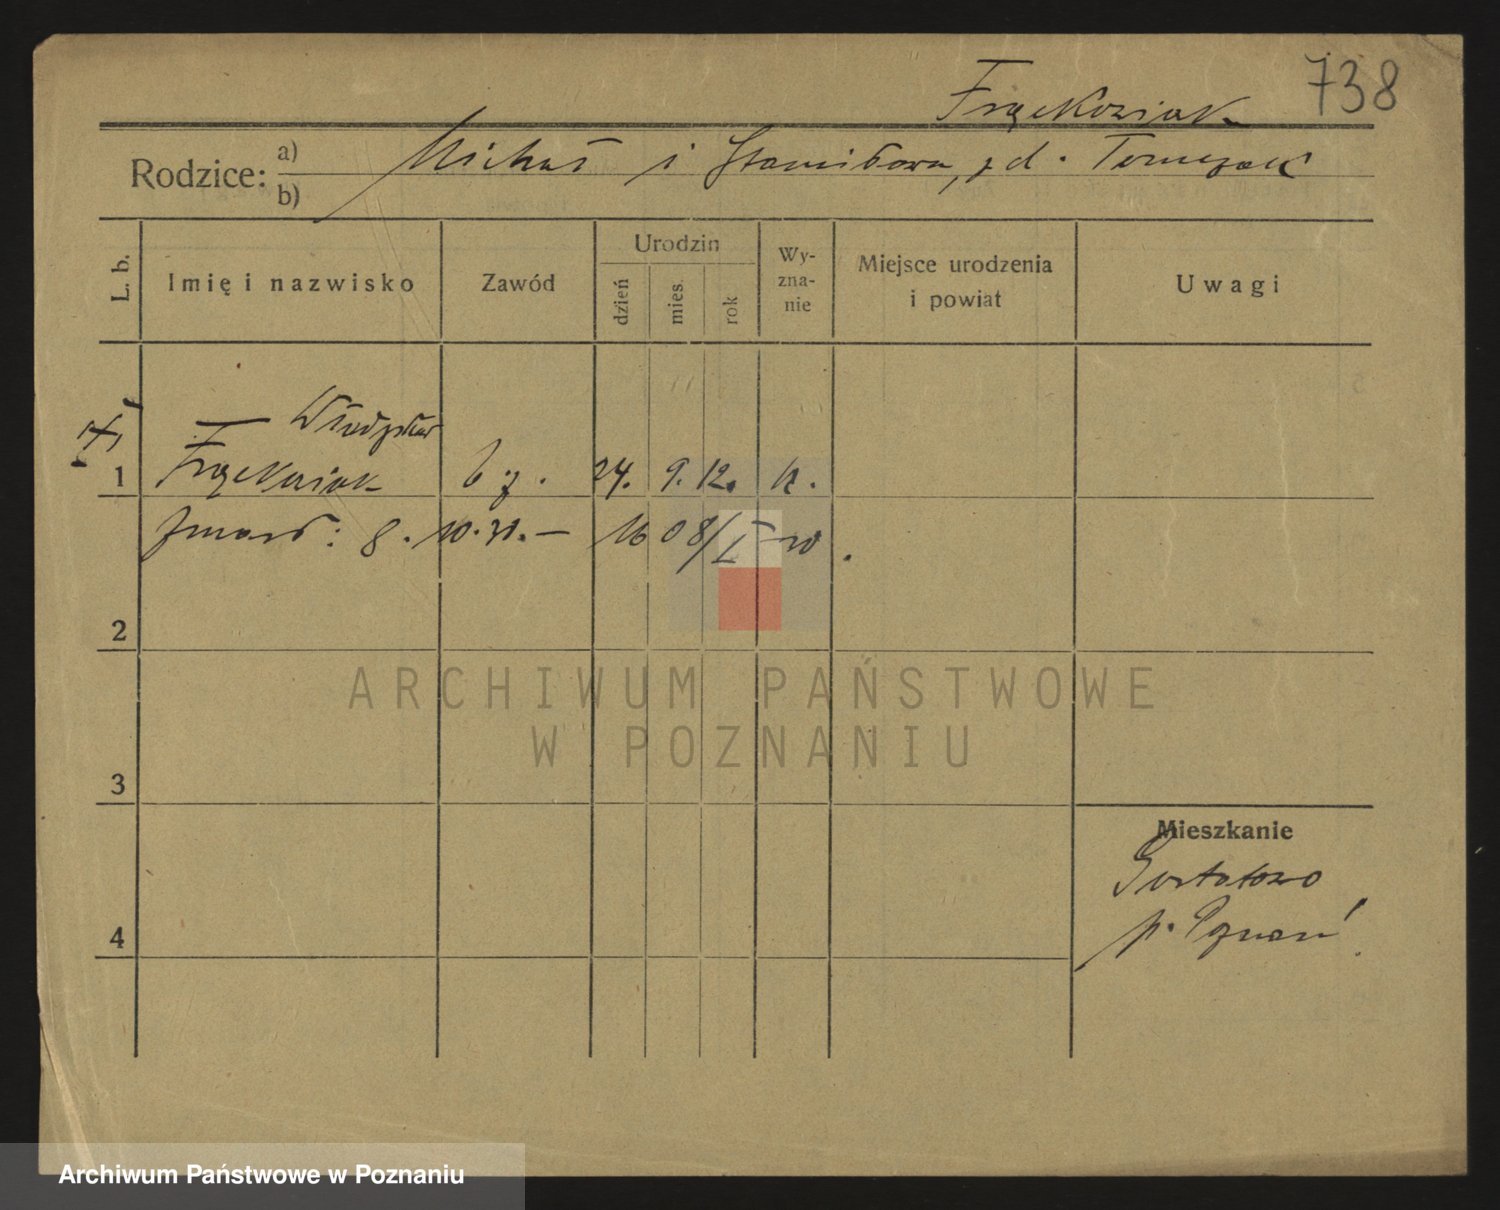 738
Frąckowiak
Rodzice: a) b) Michał i Stanisława, z d. Tomczak
L. b. Imię i nazwisko Zawód Urodzin dzień mies. rok Wy-zna-nie Miejsce urodzenia i powiat Uwagi
Władysław
1 Frąckowiak b. z. 24. 9. 12. k.
zmarł: 8. 10. 31. —
2
ARCHIWUM PAŃSTWOWE
W POZNANIU
3
Mieszkanie
Gortatowo
p. Poznań
4
Archiwum Państwowe w Poznaniu